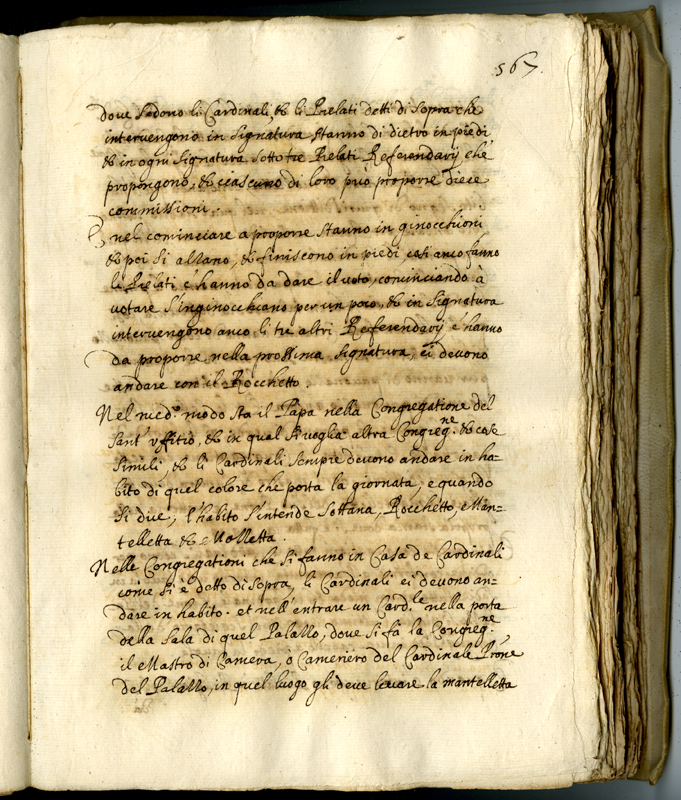 567.
dove sedono li Cardinali, & li Prelati detti di sopra che
intervengono in signatura stanno di dietro in piedi
& in ogni signatura sotto tre Prelati Referendarij che
propongono, & ciascuno di loro può proporre diece
commissioni.
nel cominciare a proporre stanno in ginocchioni
& poi si alzano, & finiscono in piedi così anco fanno
li Prelati c'hanno da dare il voto, cominciando à
votare s'inginocchiano per un poco, & in signatura
intervengono anco li tre altri Referendarij c'hanno
da proporre nella prossima signatura, ci devono
andare con il Rocchetto
Nel med.o modo sta il Papa nella Congregatione del
Sant'uffitio, & in qual si voglia altra Congreg.ne & cose
simili & li Cardinali sempre devono andare in ha=
bito di quel colore che porta la giornata, e quando
si dice, l'habito s'intende sottana, Rocchetto, e Man=
telletta & Mozzetta.
Nelle Congregationi che si fanno in Casa de Cardinali
come si è detto di sopra, li Cardinali ci devono an=
dare in habito. et nell'entrare un Card.le nella porta
della sala di quel Palazzo, dove si fà la Congreg.ne
il Mastro di Camera, ò Cameriero del Cardinale Prone
del Palazzo, in quel luogo gli deve levare la mantelletta